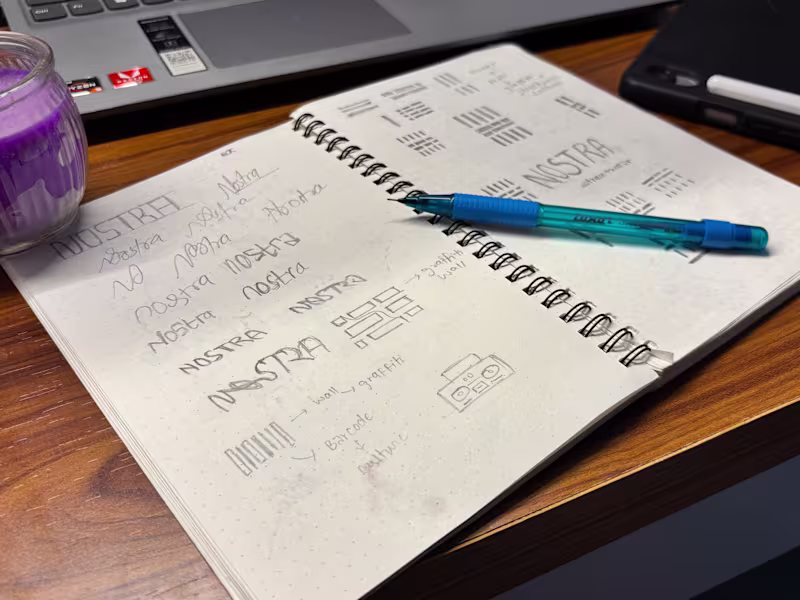 RYZEN
RADEON
NOSTRA
Nostra
Nostra
Nostra
Nostra
NO
Nostra
nostra
nostra
Nostra
nostra
NOSTRA
NOSTRA
NOSTRA
→ graffiti
wall
→ wall → graffiti
Barcode
↓
culture
NOSTRA